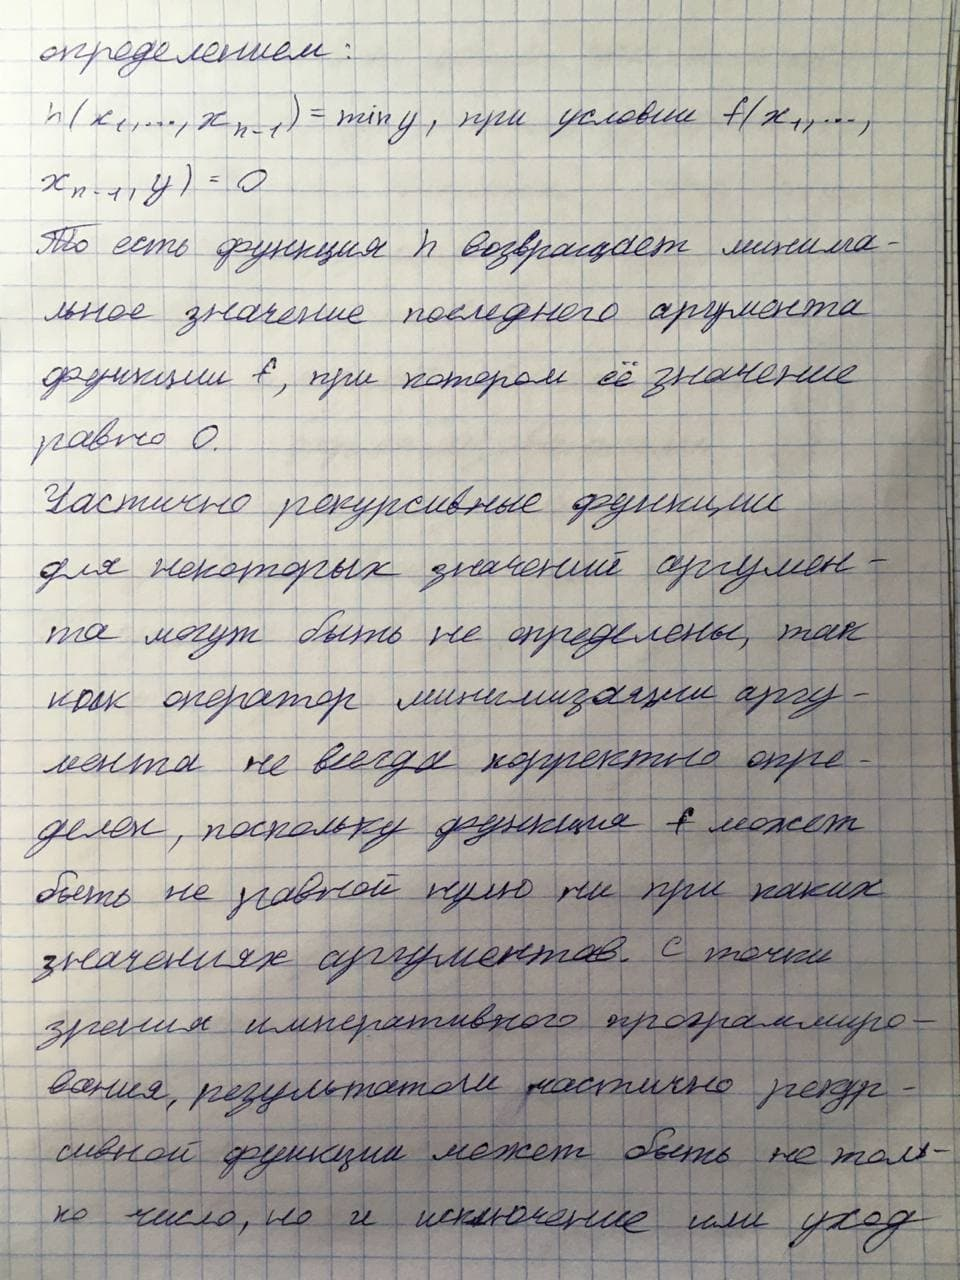 определением:
h(x₁,...,xₙ₋₁)=min y, при условии f(x₁,...,
xₙ₋₁, y) = 0
То есть функция h возвращает минима-
льное значение последнего аргумента
функции f, при котором её значение
равно 0.
Частично рекурсивные функции
для некоторых значений аргумен-
та могут быть не определены, так
как оператор минимизации аргу-
мента не всегда корректно опре-
делен, поскольку функция f может
быть не равной нулю ни при каких
значениях аргументов. С точки
зрения императивного программиро-
вания, результатом частично рекур-
сивной функции может быть не толь-
ко число, но и исключение или уход